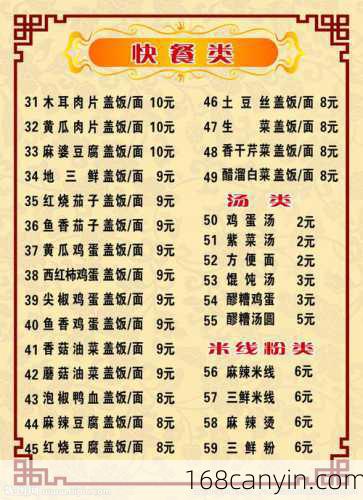 快餐类
31 木耳肉片盖饭/面 10元
32 黄瓜肉片盖饭/面 10元
33 麻婆豆腐盖饭/面 10元
34 地三鲜盖饭/面 9元
35 红烧茄子盖饭/面 9元
36 鱼香茄子盖饭/面 9元
37 黄瓜鸡蛋盖饭/面 9元
38 西红柿鸡蛋盖饭/面 9元
39 尖椒鸡蛋盖饭/面 9元
40 鱼香鸡蛋盖饭/面 9元
41 香菇油菜盖饭/面 9元
42 蘑菇油菜盖饭/面 9元
43 泡椒鸭血盖饭/面 8元
44 麻辣豆腐盖饭/面 8元
45 红烧豆腐盖饭/面 8元
46 土豆丝盖饭/面 8元
47 生菜盖饭/面 8元
48 香干芹菜盖饭/面 8元
49 醋溜白菜盖饭/面 8元
汤类
50 鸡蛋汤 2元
51 紫菜汤 2元
52 方便面 2元
53 馄饨汤 3元
54 醪糟鸡蛋 3元
55 醪糟汤圆 3元
米线粉类
56 麻辣米线 6元
57 三鲜米线 6元
58 麻辣烫 6元
59 三鲜粉 6元
168canyin.com